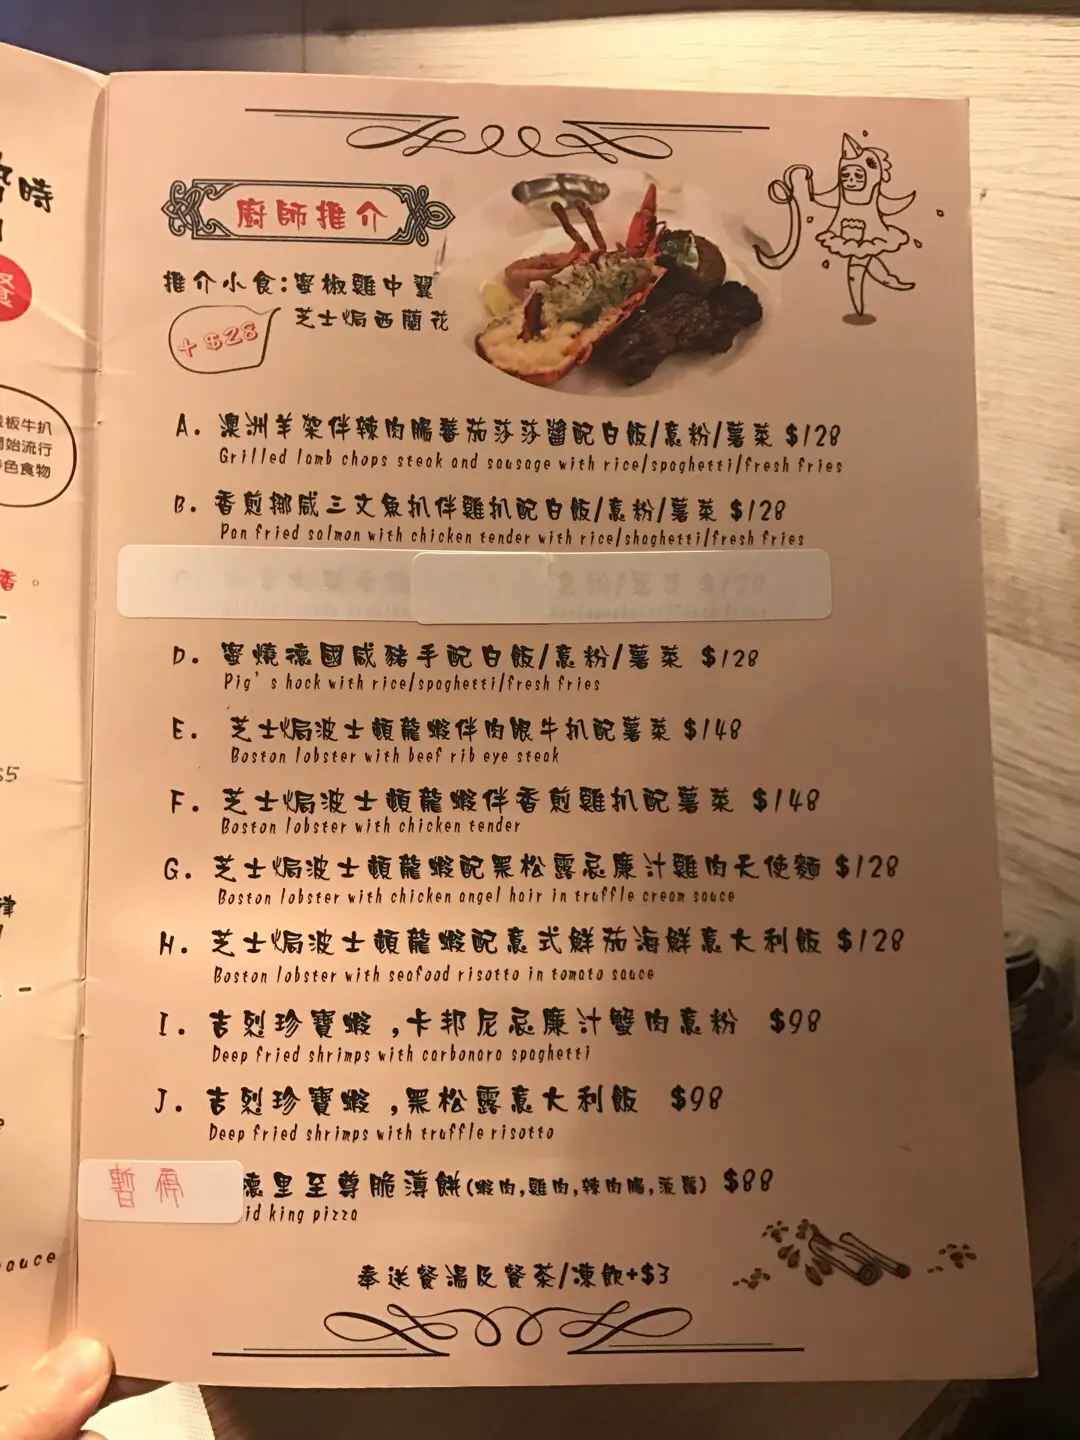 時
餐
板牛扒
開始流行
色食物
香。
$5
律
sauce
廚師推介
推介小食:蜜椒雞中翼
芝士焗西蘭花
+$28
A. 澳洲羊架伴辣肉腸蕃茄莎莎醬配白飯/意粉/薯菜 $128
Grilled lamb chops steak and sausage with rice/spaghetti/fresh fries
B. 香煎挪威三文魚扒伴雞扒配白飯/意粉/薯菜 $128
Pan fried salmon with chicken tender with rice/shaghetti/fresh fries
意粉/薯菜 $128
D. 蜜燒德國咸豬手配白飯/意粉/薯菜 $128
Pig's hock with rice/spaghetti/fresh fries
E. 芝士焗波士頓龍蝦伴肉眼牛扒配薯菜 $148
Boston lobster with beef rib eye steak
F. 芝士焗波士頓龍蝦伴香煎雞扒配薯菜 $148
Boston lobster with chicken tender
G. 芝士焗波士頓龍蝦配黑松露忌廉汁雞肉天使麵 $128
Boston lobster with chicken angel hair in truffle cream sauce
H. 芝士焗波士頓龍蝦配意式鮮茄海鮮意大利飯 $128
Boston lobster with seafood risotto in tomato sauce
I. 吉烈珍寶蝦,卡邦尼忌廉汁蟹肉意粉 $98
Deep fried shrimps with carbonara spaghetti
J. 吉烈珍寶蝦,黑松露意大利飯 $98
Deep fried shrimps with truffle risotto
暫停
德里至尊脆薄餅(蝦肉,雞肉,辣肉腸,菠蘿) $88
id king pizza
奉送餐湯及餐茶/凍飲+$3